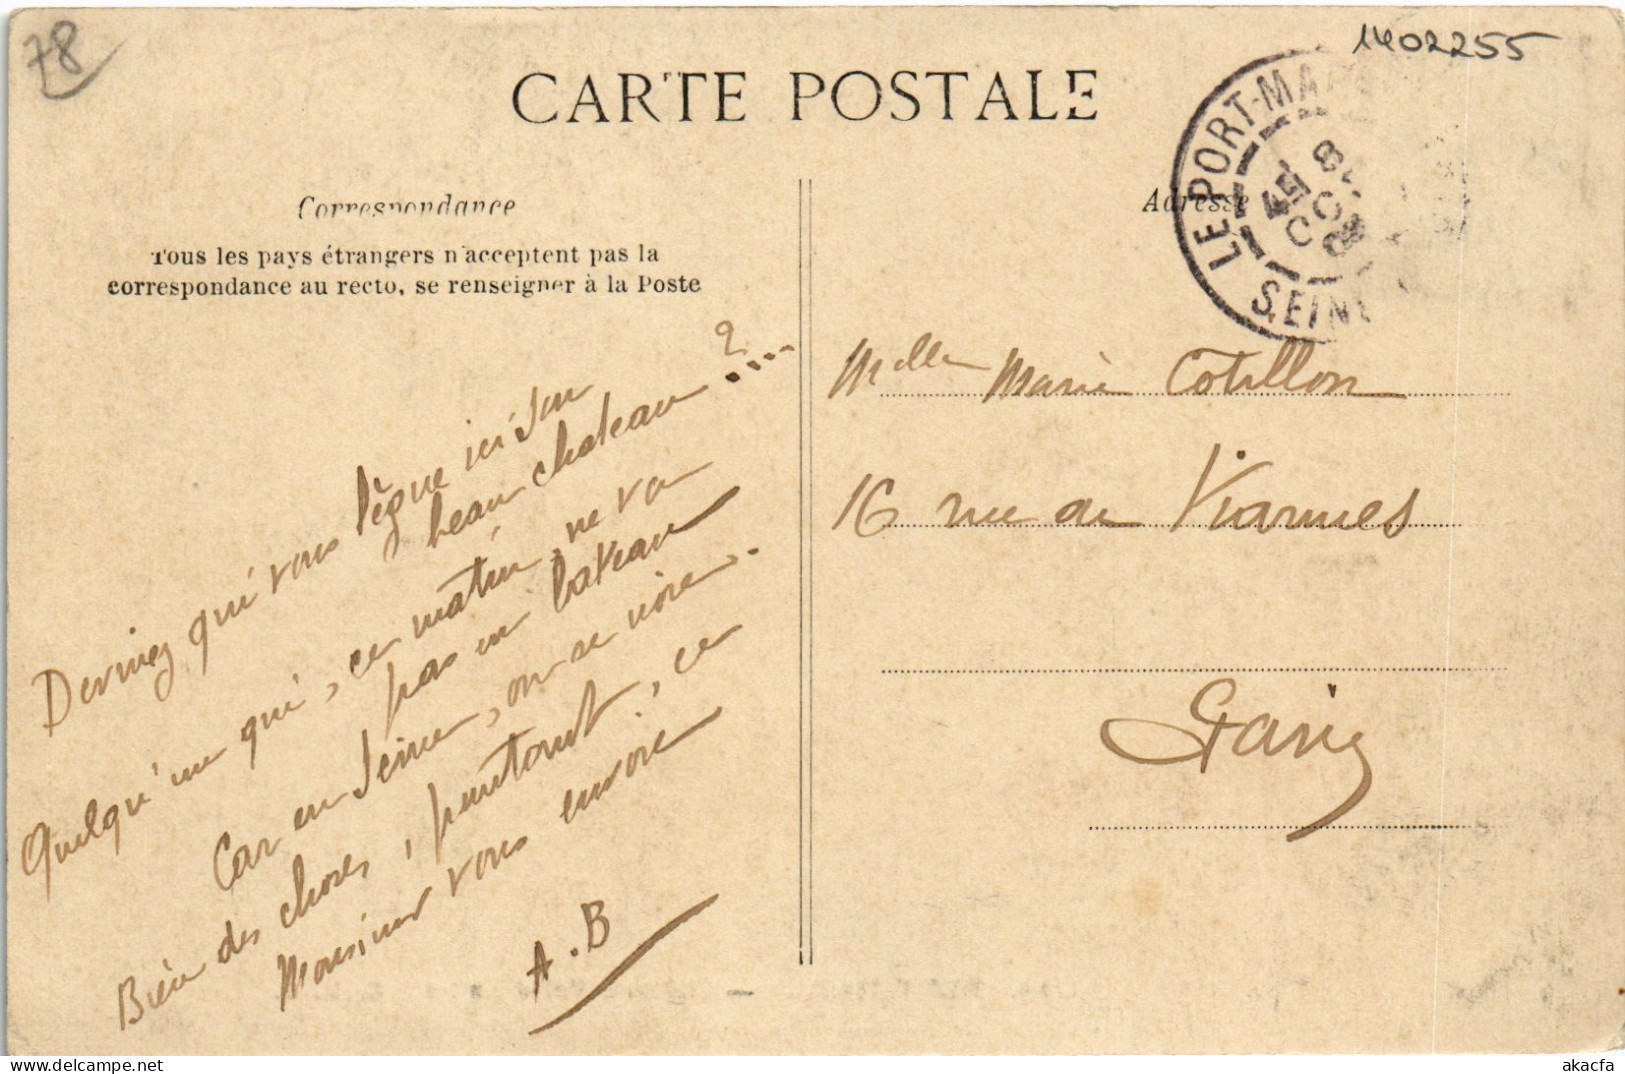 78
1402255
CARTE POSTALE
Correspondance
Tous les pays étrangers n'acceptent pas la
correspondance au recto, se renseigner à la Poste
Adresse
LE PORT-MA
SEINE
8
Devinez qui vous lègue ici son
beau chateau ?...
Quelqu'un qui, ce matin, ne va
pas en bateau
Car en Seine, on se noie.
Bien des choses, partout, ce
Monsieur vous envoie
A.B
Melle Marie Cotillon
16 rue de Viarmes
Paris
akacfa